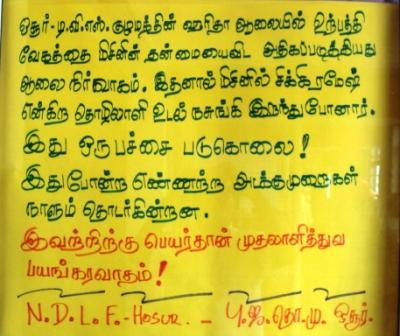 ஒசூர்-டி.வி.எஸ். குழுமத்தின் ஹரிதா ஆலையில் உற்பத்தி
வேகத்தை மிசினின் தன்மையைவிட அதிகப்படுத்தியது
ஆலை நிர்வாகம். இதனால் மிசினில் சிக்கி ரமேஷ்
என்கிற தொழிலாளி உடல் நசுங்கி இறந்துபோனார்.
இது ஒரு பச்சை படுகொலை!
இதுபோன்ற எண்ணற்ற அடக்குமுறைகள்
நாளும் தொடர்கின்றன.
இவற்றிற்கு பெயர்தான் முதலாளித்துவ
பயங்கரவாதம்!
N.D.L.F.-HOSUR. - பு.ஜ.தொ.மு. ஒசூர்.